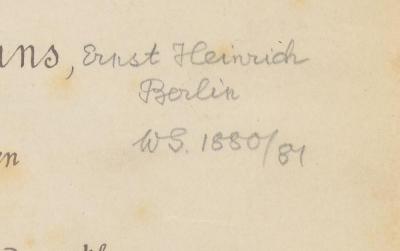 uns, Ernst Heinrich
Berlin
WS. 1880/81
en